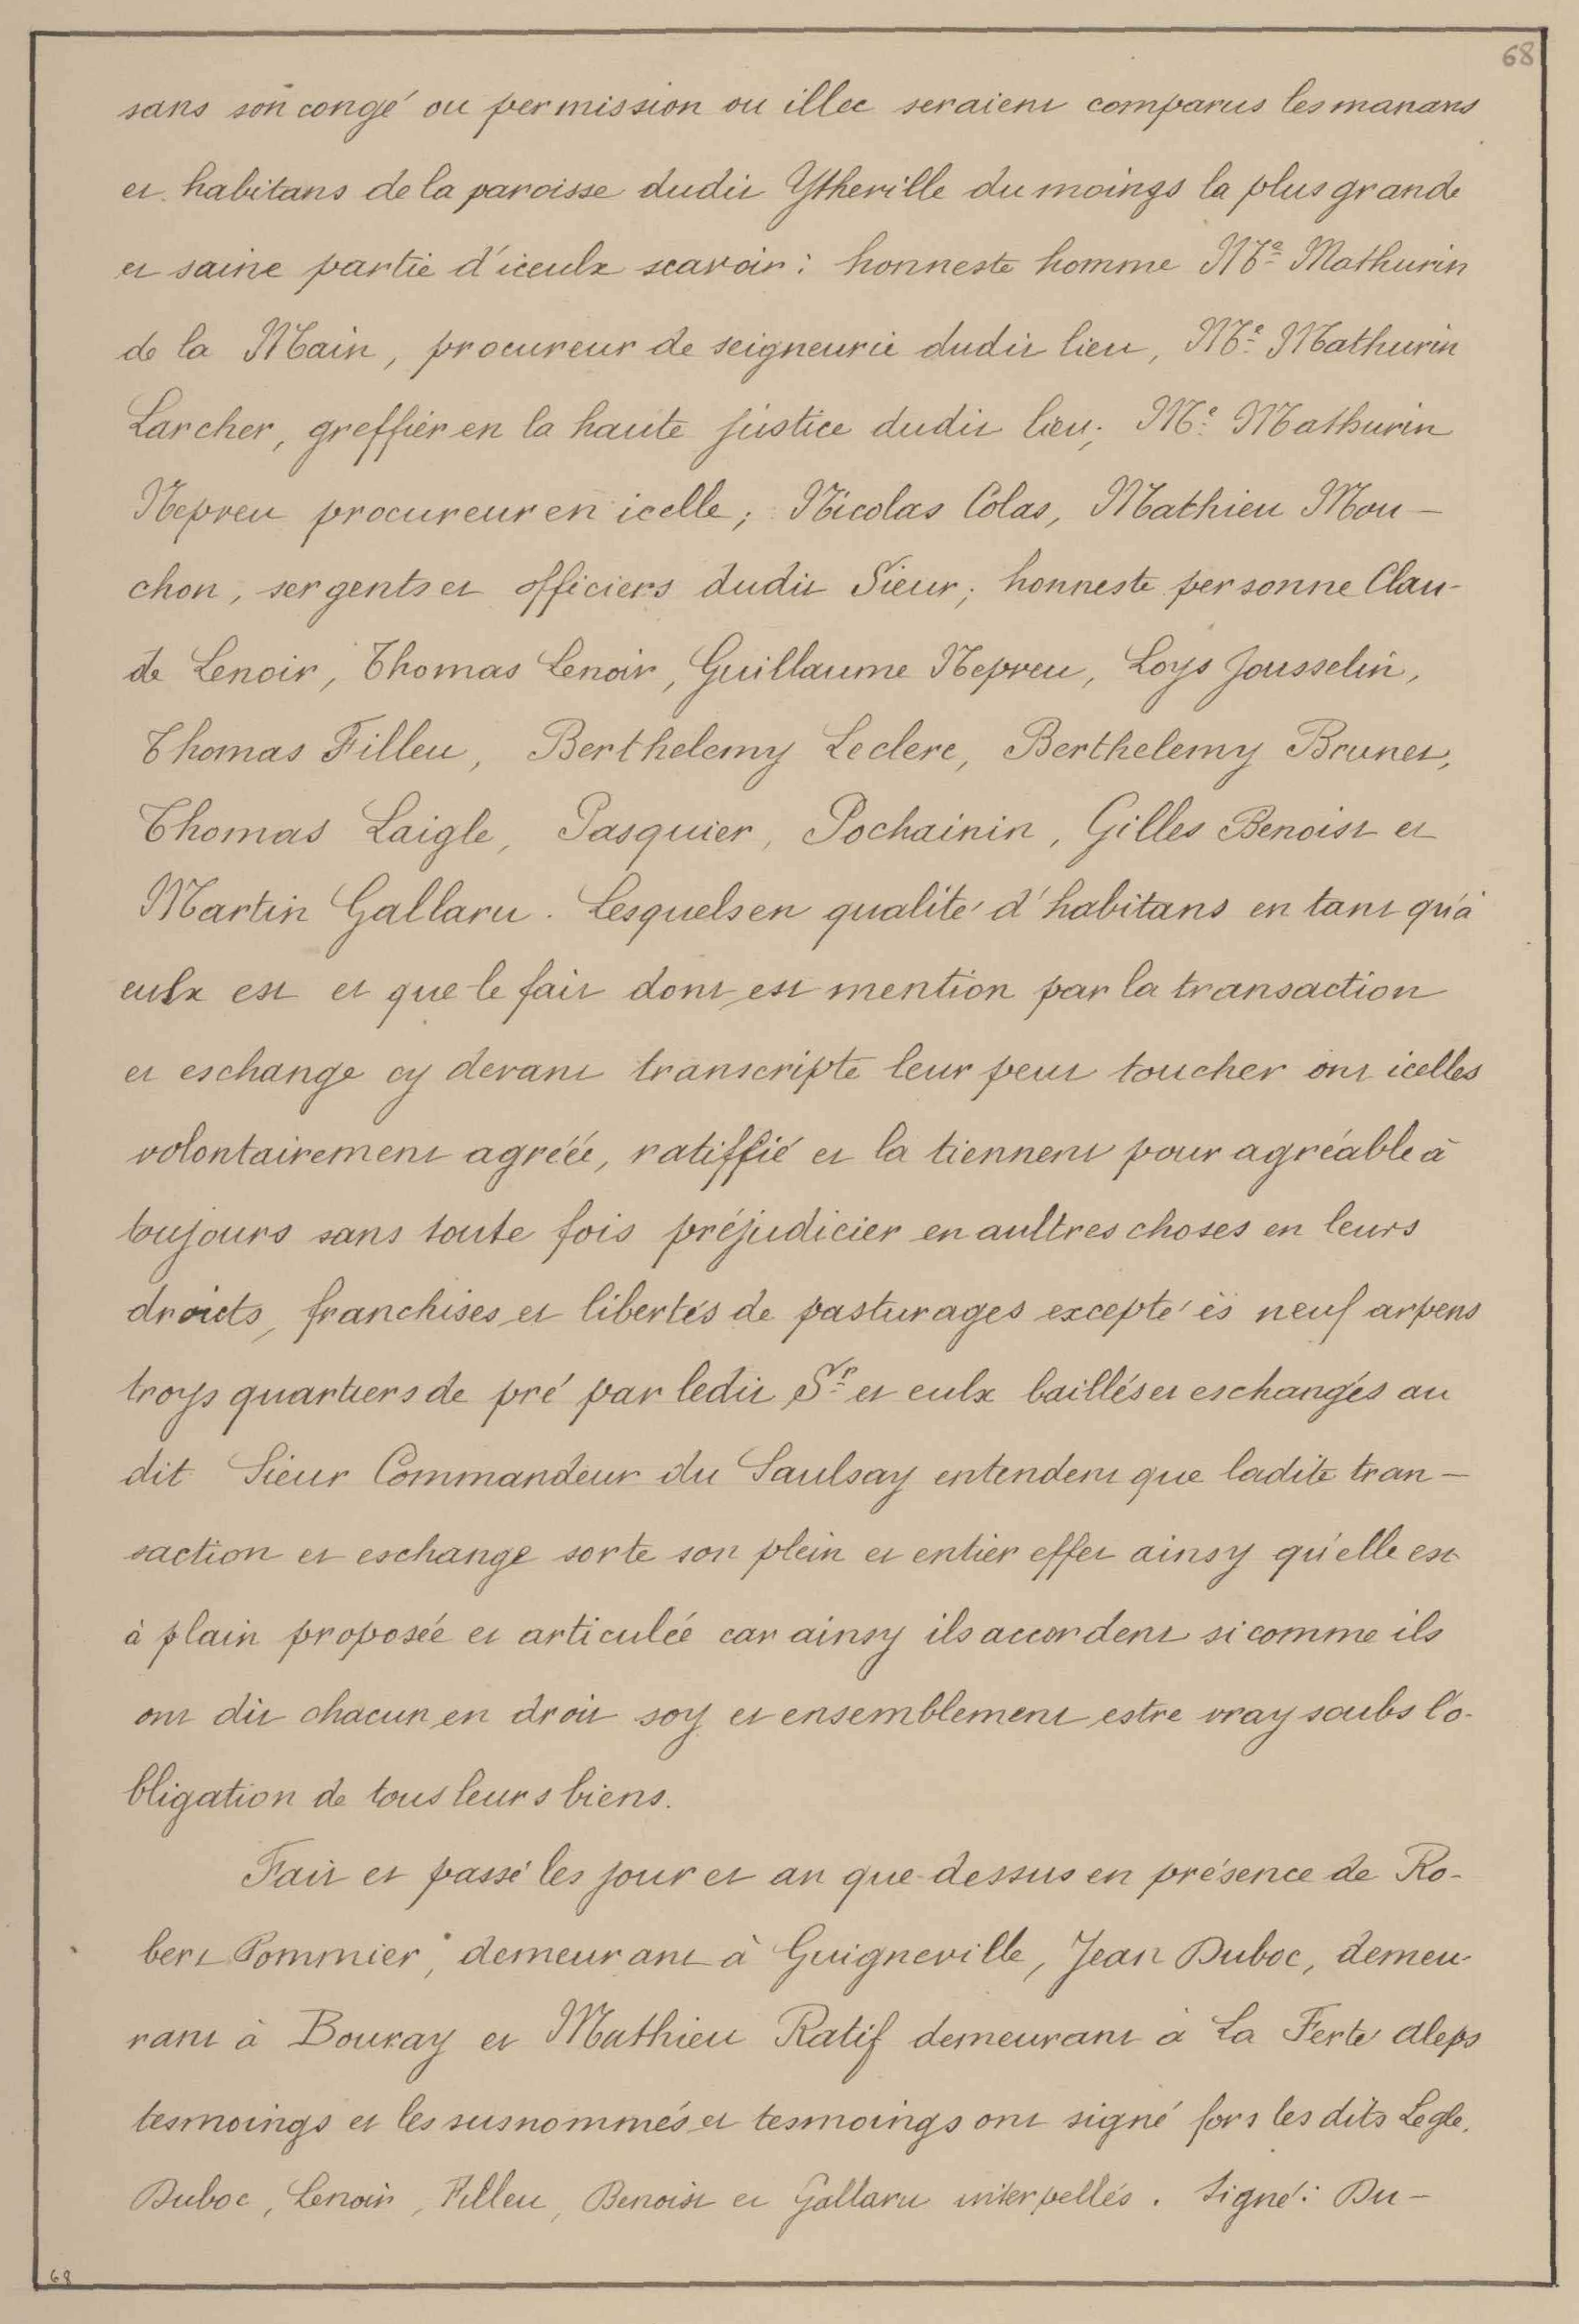 68
sans son congé ou permission ou illec seraient comparus les manans
et habitans de la paroisse dudit Ytheville du moings la plus grande
et saine partie d'iceulx scavoir : honneste homme Me Mathurin
de la Main, procureur de seigneurie dudit lieu, Me Mathurin
Larcher, greffier en la haute justice dudit lieu; Me Mathurin
Nepveu procureur en icelle; Nicolas Colas, Mathieu Mou-
chon, sergents et officiers dudit Sieur; honneste personne Clau-
de Lenoir, Thomas Lenoir, Guillaume Nepveu, Loys Jousselin,
Thomas Filleu, Berthelemy Leclerc, Berthelemy Brunet,
Thomas Laigle, Pasquier, Pochainin, Gilles Benoist et
Martin Gallaru. Lesquels en qualité d'habitans en tant qu'à
eulx est et que le fait dont est mention par la transaction
et eschange cy devant transcripte leur peut toucher ont icelles
volontairement agréée, ratiffié et la tiennent pour agréable à
toujours sans toute fois préjudicier en aultres choses en leurs
droicts, franchises et libertés de pasturages excepté ès neuf arpens
troys quartiers de pré par ledit Sr et eulx baillés et eschangés au
dit Sieur Commandeur du Saulsay entendent que ladite tran-
saction et eschange sorte son plein et entier effet ainsy qu'elle est
à plain proposée et articulée car ainsy ils accordent si comme ils
ont dit chacun en droit soy et ensemblement estre vray soubs l'o-
bligation de tous leurs biens.
Fait et passé les jour et an que dessus en présence de Ro-
bert Pommier, demeurant à Guigneville, Jean Duboc, demeu-
rant à Bouray et Mathieu Ratif demeurant à La Ferte aleps
tesmoings et les susnommés et tesmoings ont signé fors les dits Legle,
Duboc, Lenoir, Filleu, Benoist et Gallaru interpellés. Signé : Du-
68